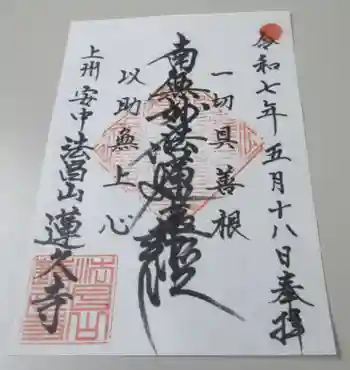 令和七年五月十八日奉拜
一切具善根
南無妙法蓮華經
以助無上心
上州 安中 法昌山 蓮久寺